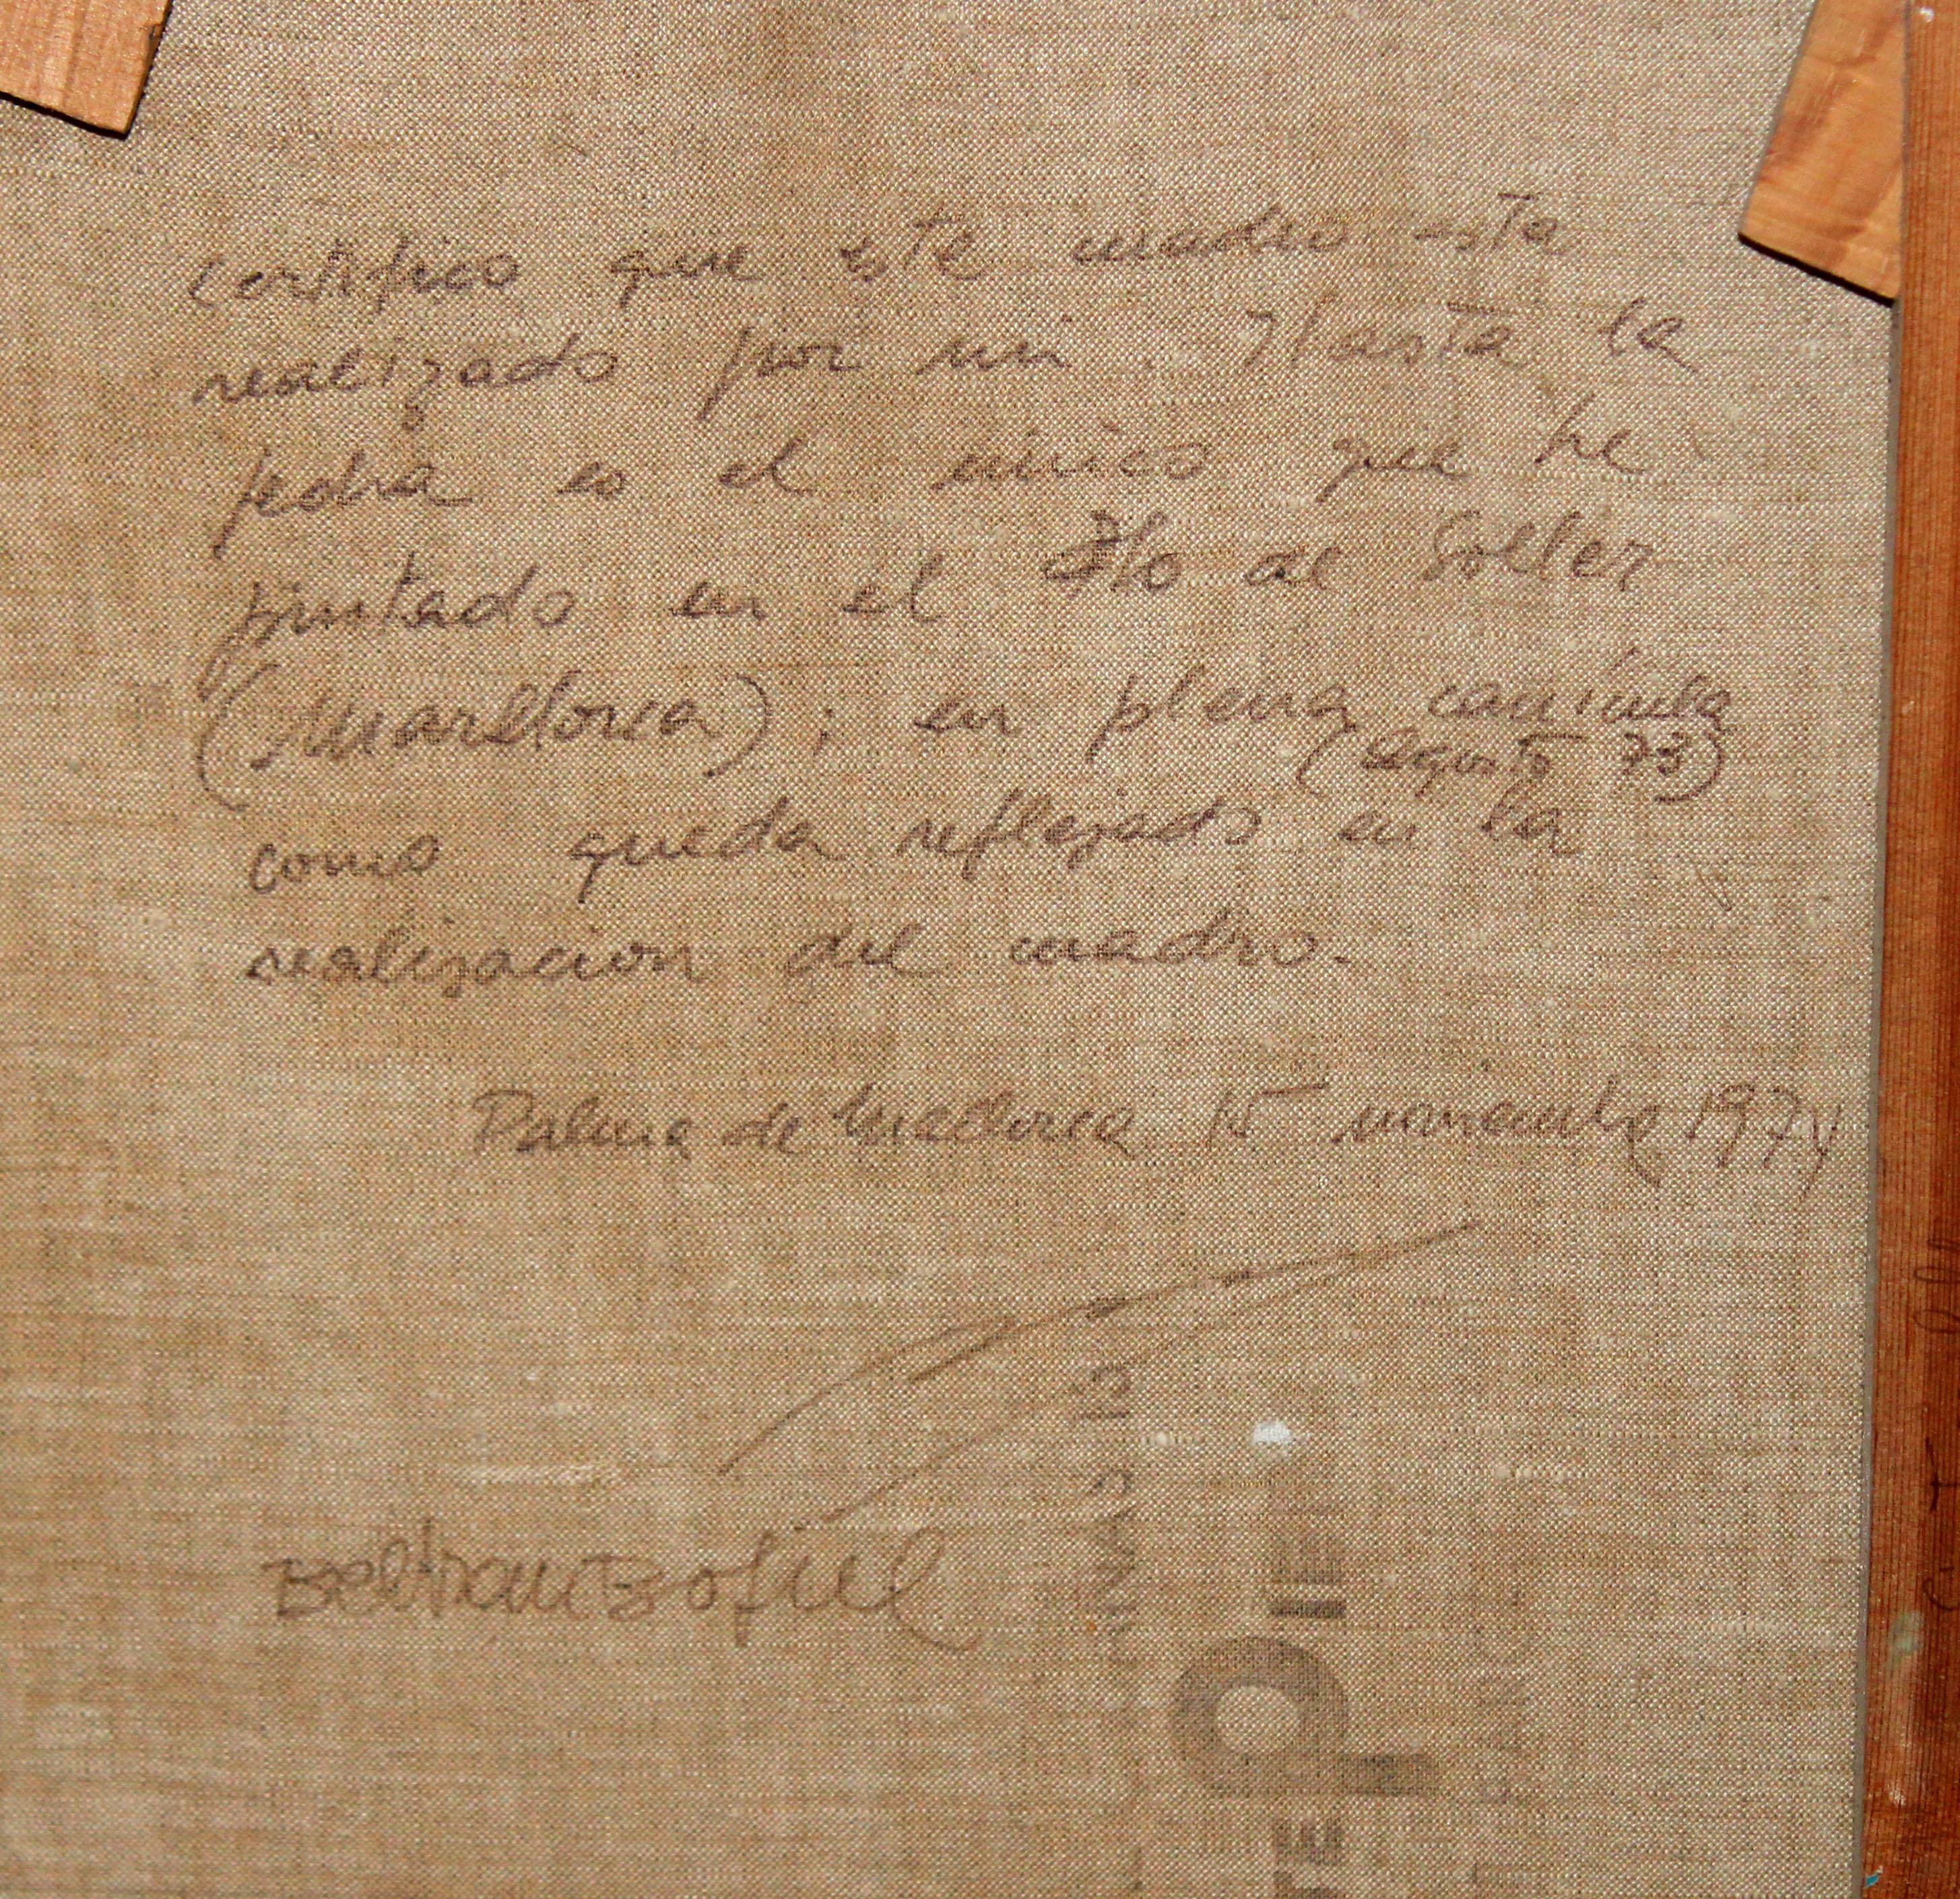 certifico que este cuadro esta
realizado por mi. Hasta la
fecha es el unico que he
pintado en el Pto de Soller
(Marllorca); en plena canicula
(Agosto 73)
como queda reflejado en la
realizacion del cuadro.
Palma de Mallorca 15 noviembre 1974
Beltran Bofill